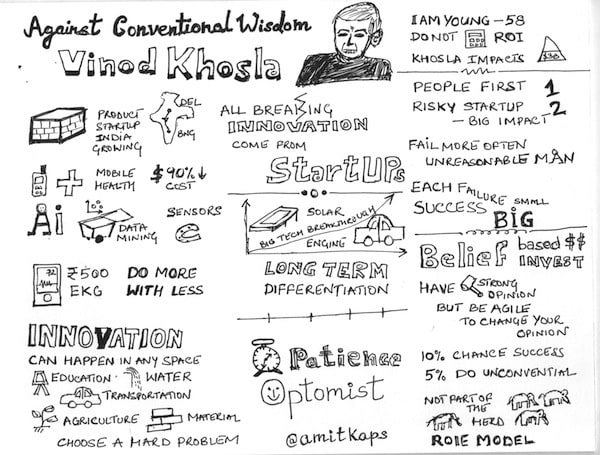 Against Conventional Wisdom
Vinod Khosla
PRODUCT
STARTUP
INDIA
GROWING
DEL
BNG
MOBILE
HEALTH
$90%↓
COST
Ai
DATA
MINING
SENSORS
72
₹500
EKG
DO MORE
WITH LESS
INNOVATION
CAN HAPPEN IN ANY SPACE
EDUCATION
WATER
TRANSPORTATION
AGRICULTURE
MATERIAL
CHOOSE A HARD PROBLEM
ALL BREAKING
INNOVATION
COME FROM
StartUPs
SOLAR
BIG TECH BREAKTHROUGH
ENGINE
LONG TERM
DIFFERENTIATION
Patience
Optomist
@amitkaps
I AM YOUNG - 58
DO NOT ROI
KHOSLA IMPACTS
PEOPLE FIRST 1
RISKY STARTUP 2
- BIG IMPACT
FAIL MORE OFTEN
UNREASONABLE MAN
EACH FAILURE SMALL
SUCCESS BIG
Belief based $$
INVEST
HAVE STRONG
OPINION
BUT BE AGILE
TO CHANGE YOUR
OPINION
10% CHANCE SUCCESS
5% DO UNCONVENTIONAL
NOT PART OF
THE
HERD
ROLE MODEL